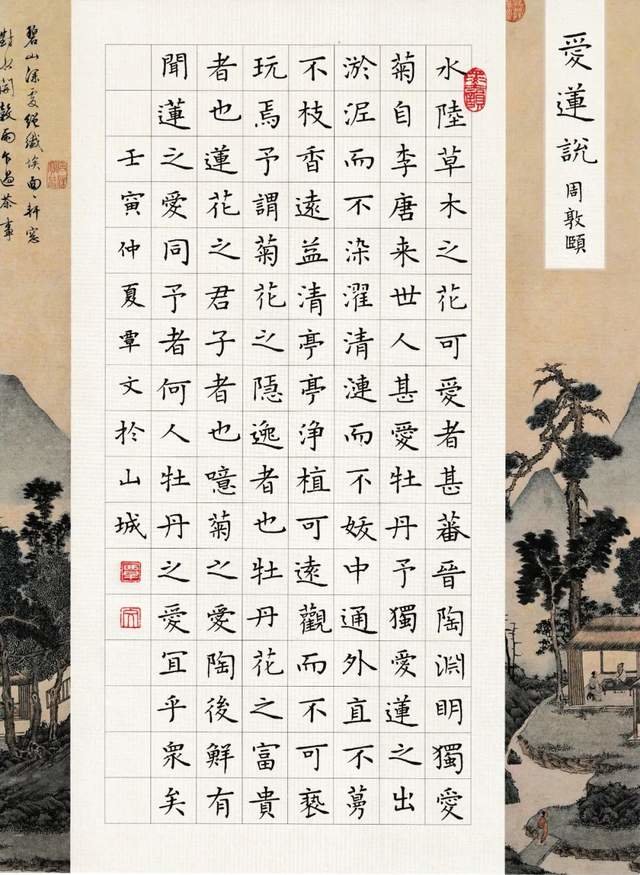 愛蓮說
周敦頤
水陸草木之花可愛者甚蕃晉陶淵明獨愛
菊自李唐来世人甚愛牡丹予獨愛蓮之出
淤泥而不染濯清漣而不妖中通外直不蔓
不枝香遠益清亭亭浄植可遠觀而不可褻
玩焉予謂菊花之隱逸者也牡丹花之富貴
者也蓮花之君子者也噫菊之愛陶後鮮有
聞蓮之愛同予者何人牡丹之愛冝乎衆矣
壬寅仲夏覃文於山城
覃
文
碧山深處絕纖埃面〻軒窓
對水開穀雨乍過茶事